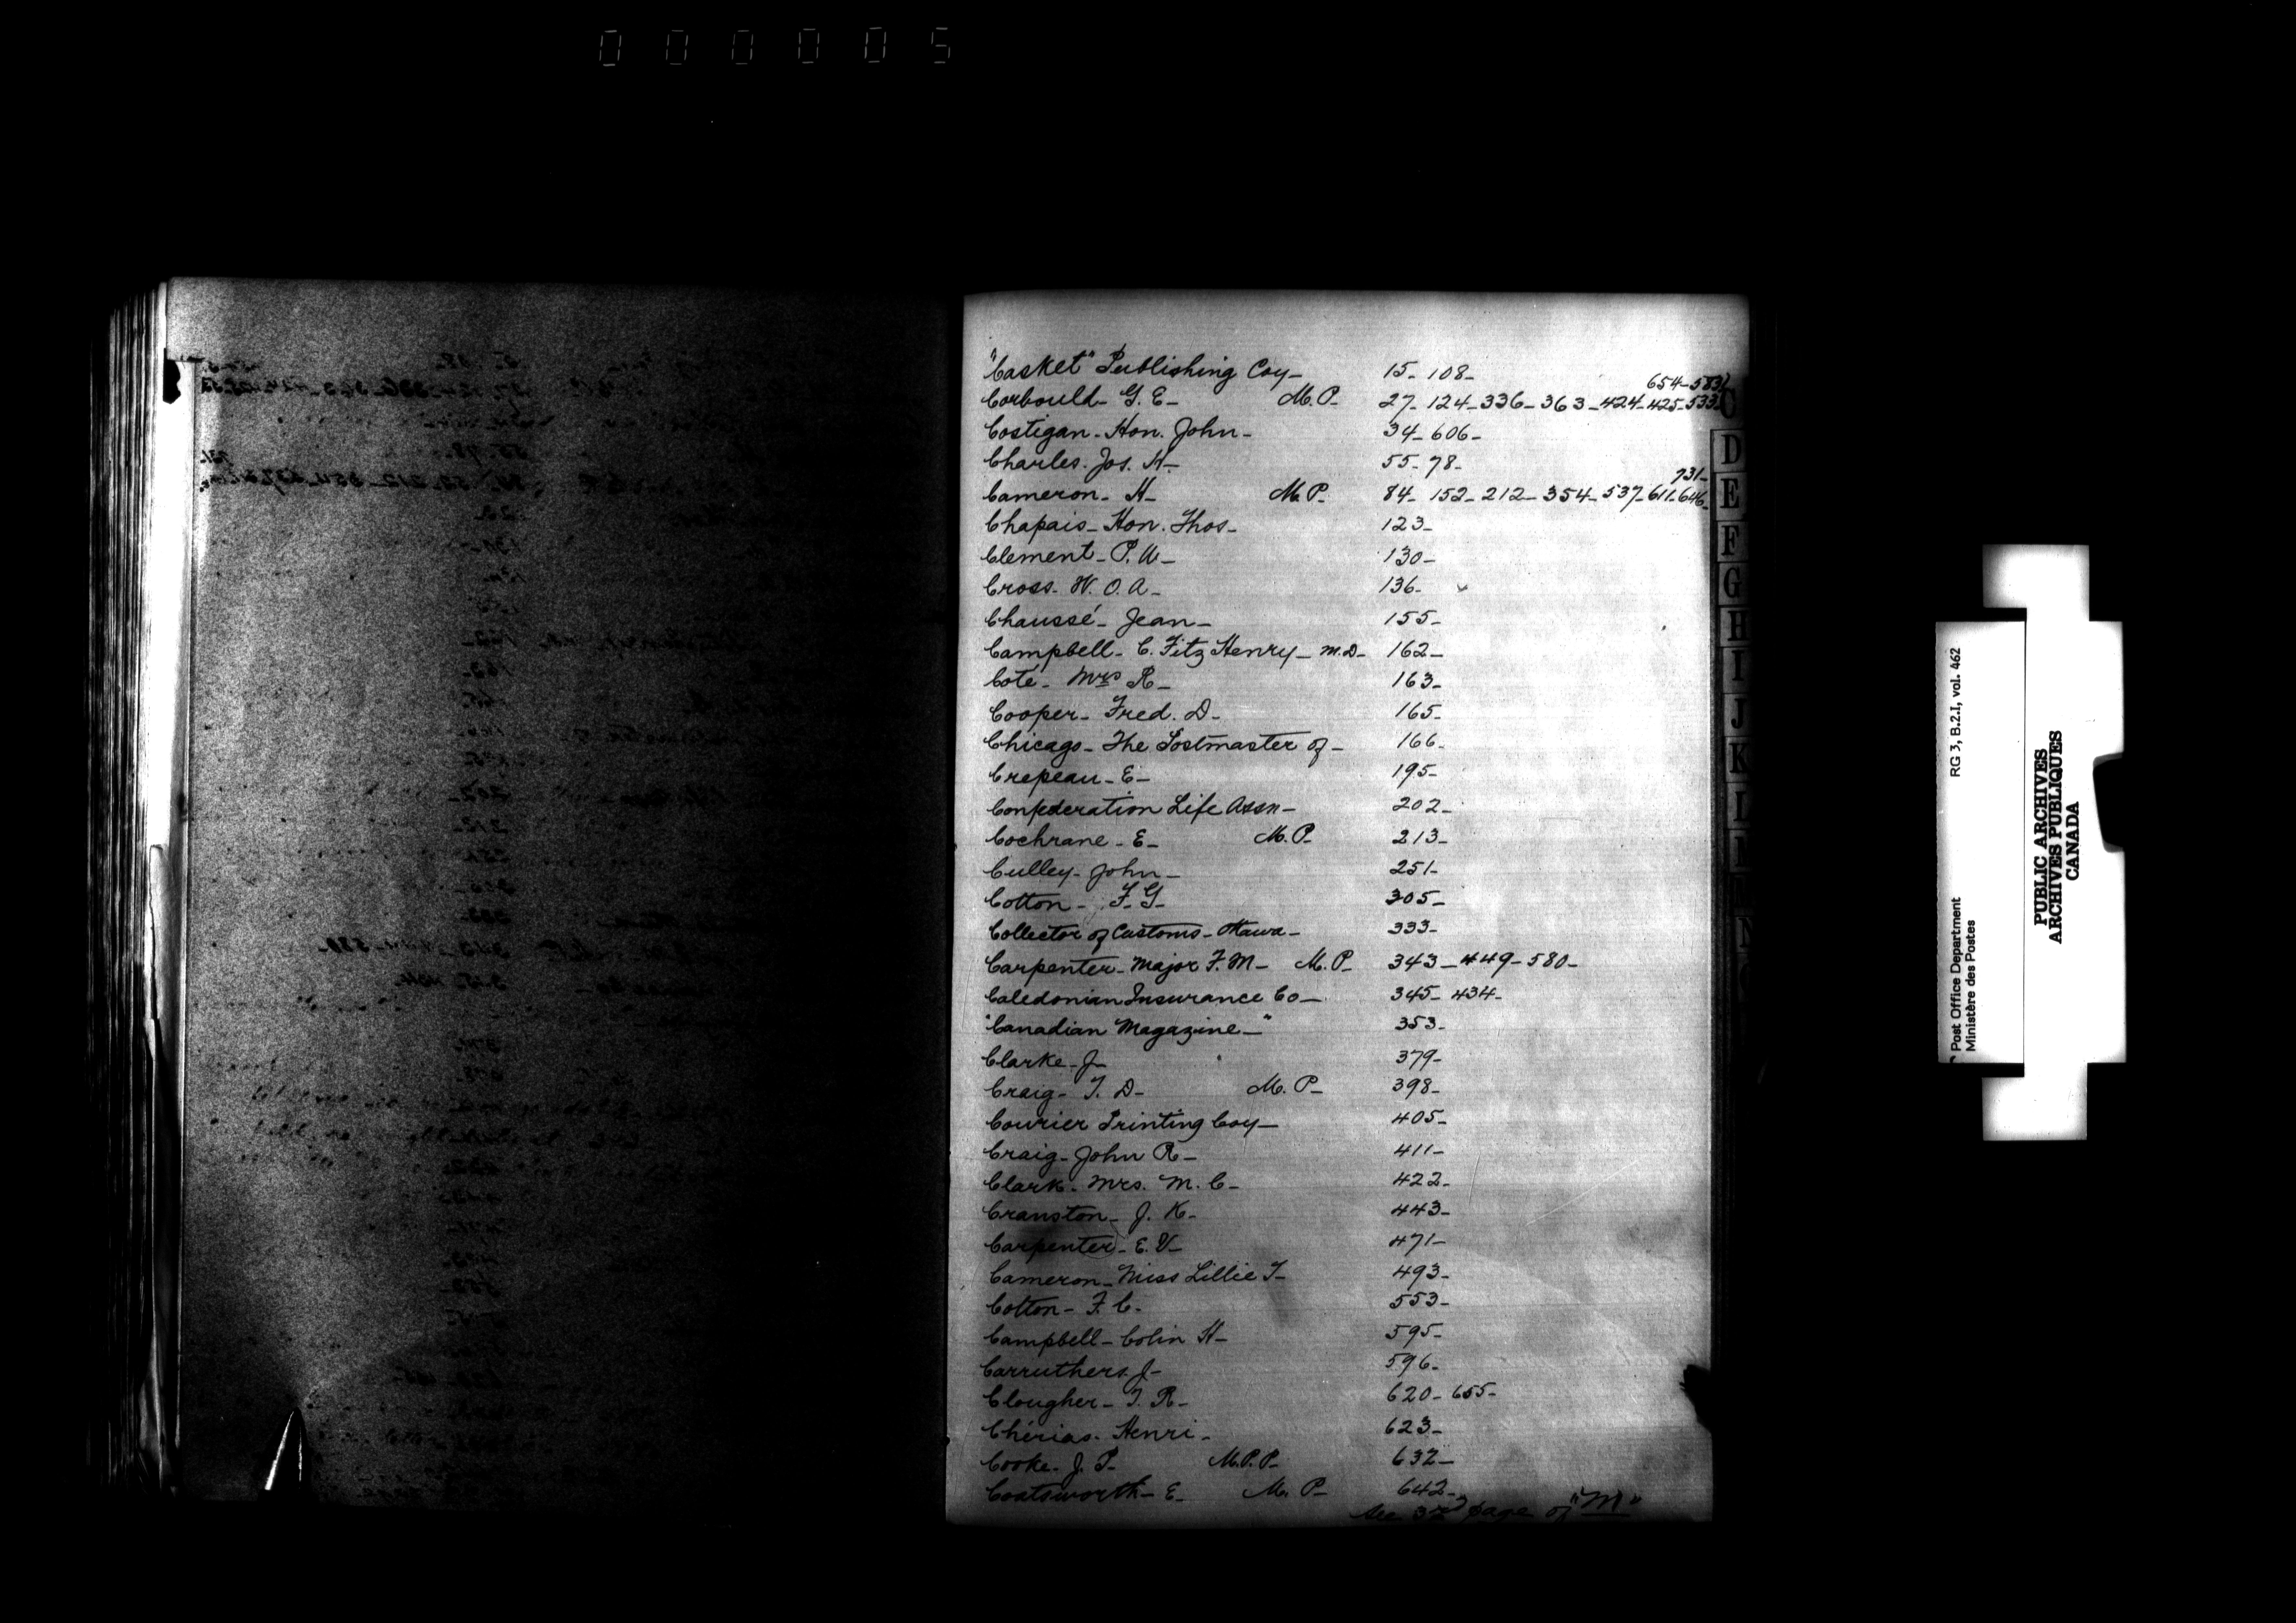 000005
"Casket" Publishing Coy - 15 - 108 -
654 - 583
Corbould - G. E - M. P. - 27 - 124 - 336 - 363 - 424 - 425 - 533
Costigan - Hon. John - 34 - 606 -
Charles. Jos. H - 55 - 78 -
731 -
Cameron - H - M. P. - 84 - 152 - 212 - 354 - 537 - 611 - 646 -
Chapais - Hon. Thos - 123 -
Clement - P. A - 130 -
Cross - W. O. A - 136 -
Chaussé - Jean - 155 -
Campbell - C. Fitz Henry - M.D - 162 -
Coté - Mrs R - 163 -
Cooper - Fred. D - 165 -
Chicago - The Postmaster of - 166 -
Crepeau - E - 195 -
Confederation Life Assn - 202 -
Cochrane - E - M. P. - 213 -
Culley - John - 251 -
Cotton - F. G - 305 -
Collector of Customs - Ottawa - 333 -
Carpenter - Major F. M - M. P. - 343 - 449 - 580 -
Caledonian Insurance Co - 345 - 434 -
"Canadian Magazine -" 353 -
Clarke - J - 379 -
Craig - T. D - M. P. - 398 -
Courier Printing Coy - 405 -
Craig - John R - 411 -
Clark - Mrs. M. C - 422 -
Cranston - J. K - 443 -
Carpenter - E. V - 471 -
Cameron - Miss Lillie T - 493 -
Cotton - F. C - 553 -
Campbell - Colin H - 595 -
Carruthers. J - 596 -
Clougher - T. R - 620 - 655 -
Chérias. Henri - 623 -
Cooke - J. P. M. P. P. - 632 -
Coatsworth - E - M. P. - 642 -
See 3rd page of "M"
C
D
E
F
G
H
I
J
K
L
N
Post Office Department RG 3, B.2.I, vol. 462
Ministère des Postes
PUBLIC ARCHIVES
ARCHIVES PUBLIQUES
CANADA